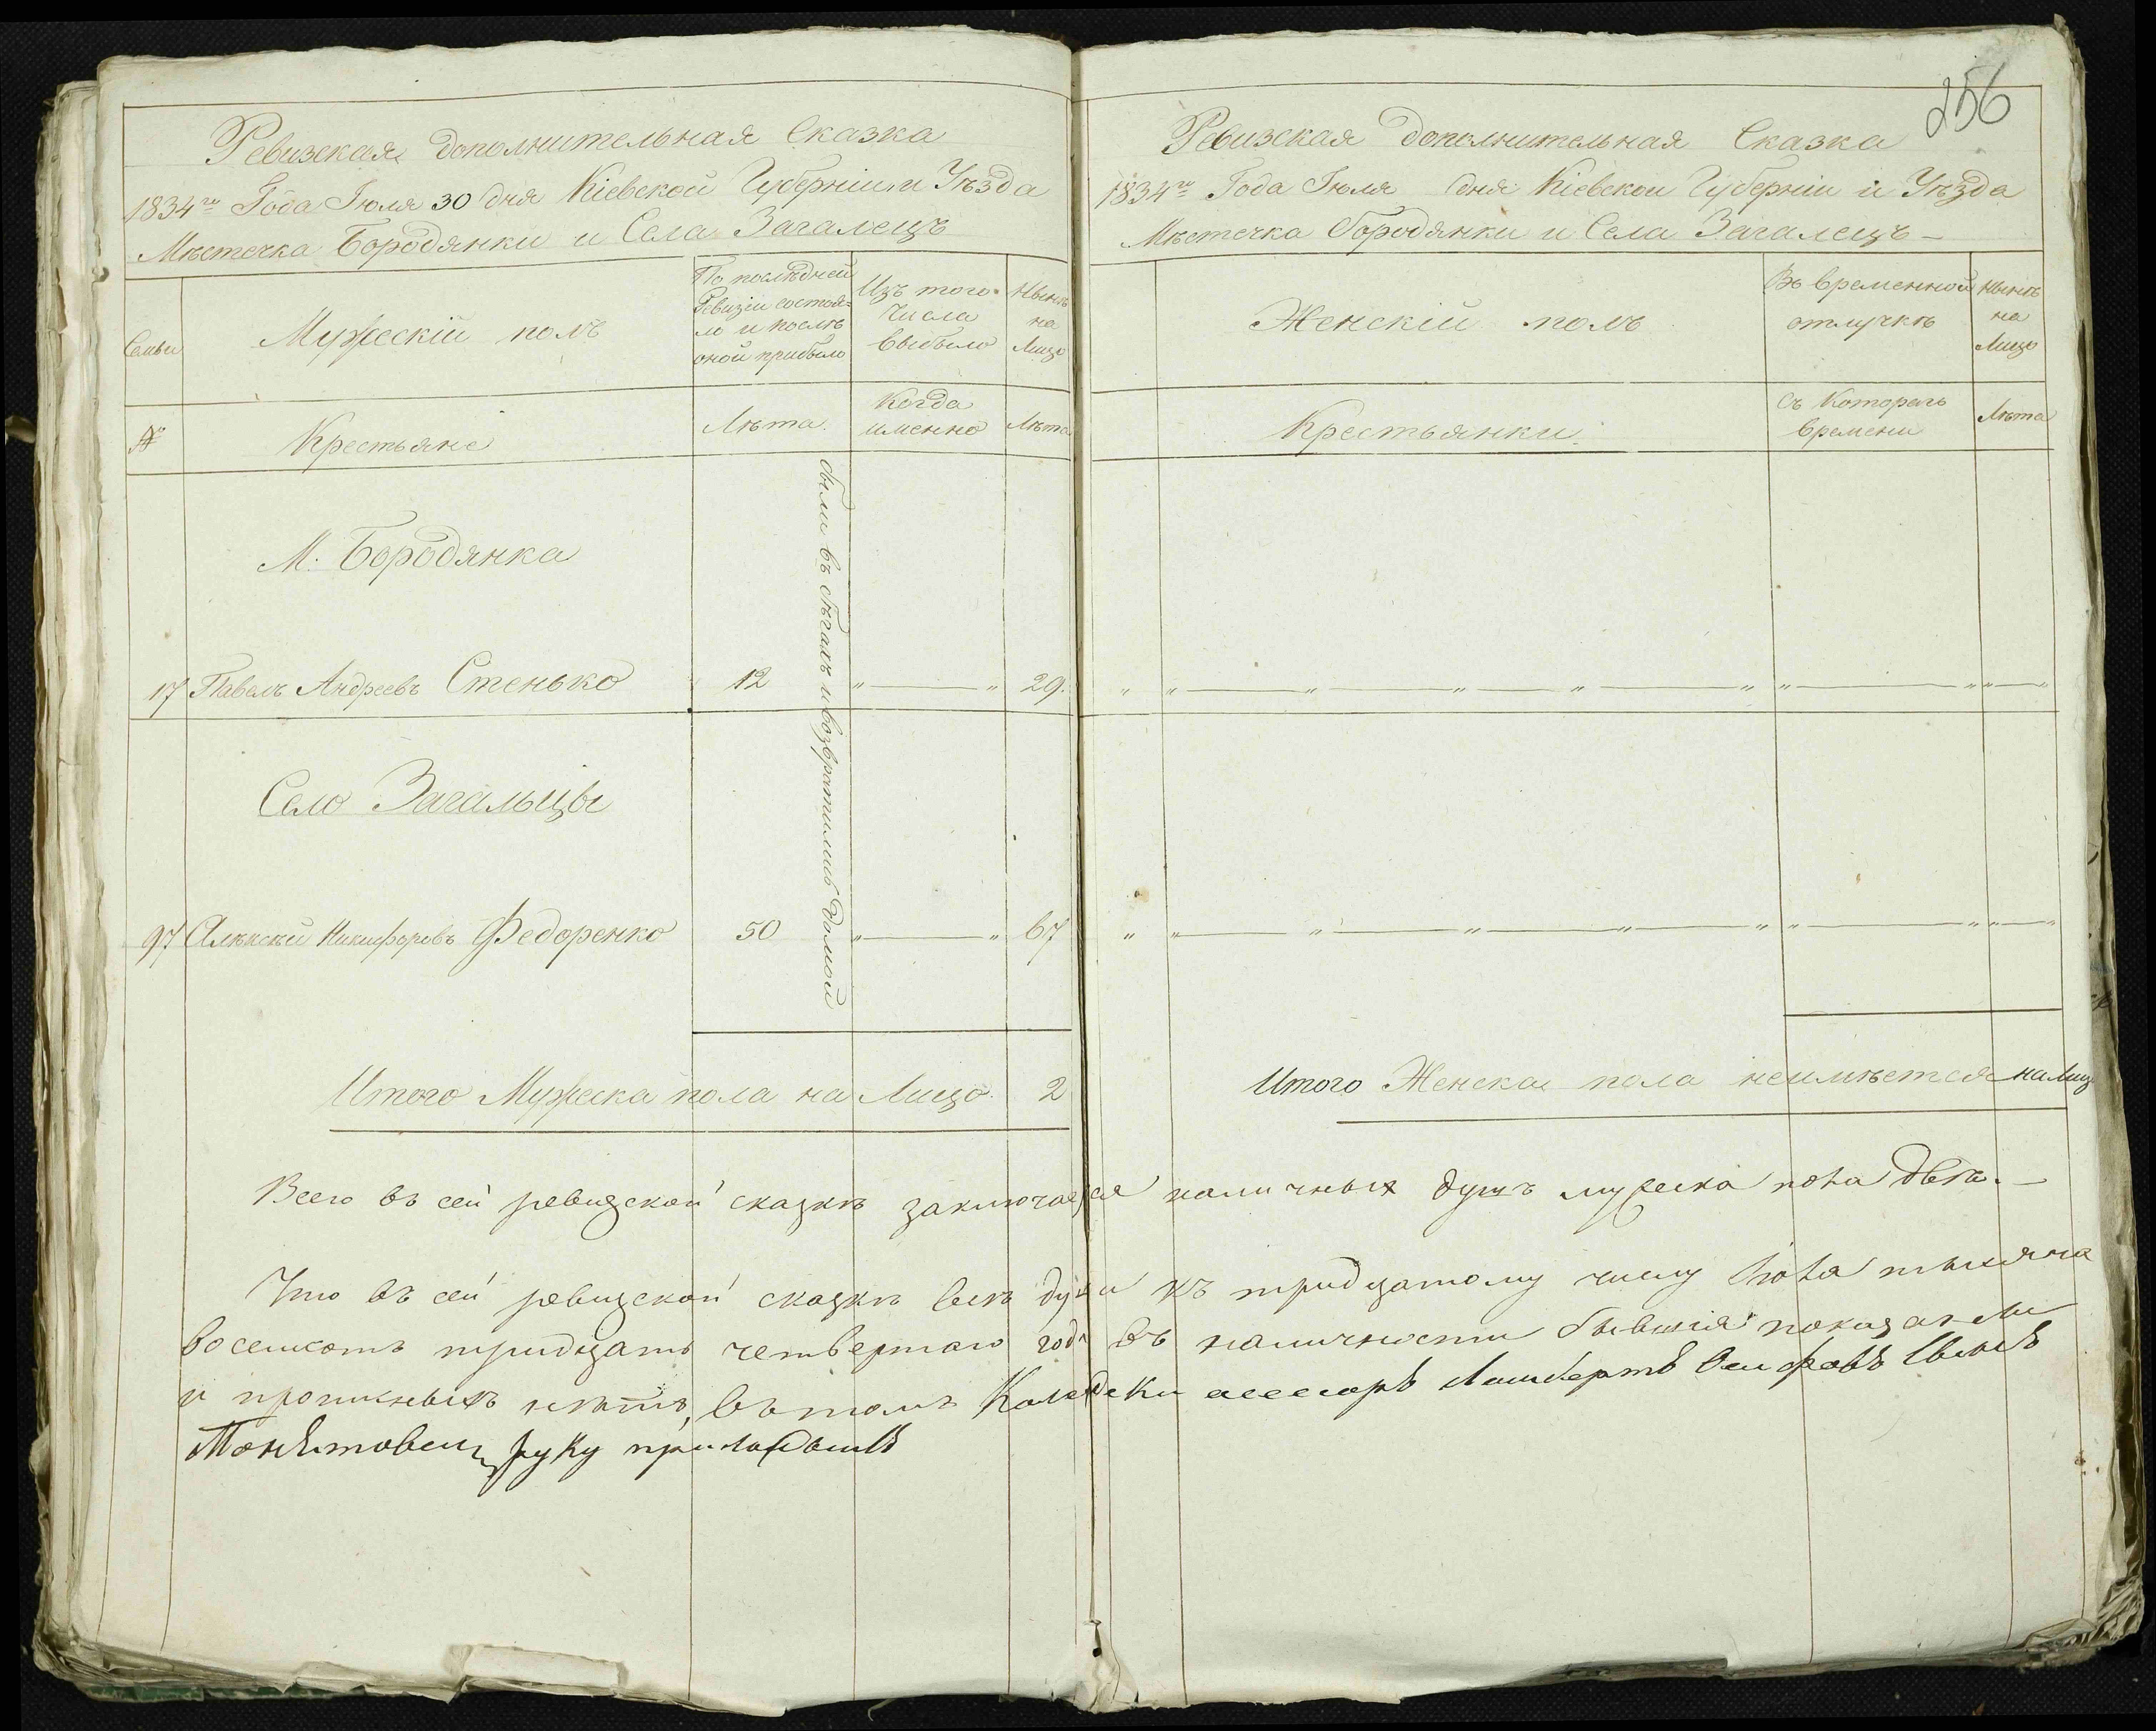 Ревизская дополнительная Сказка
1834го Года Іюля 30 дня Кіевской Губерніи и Уѣзда
Мѣстечка Бородянки и Села Загалецъ
Семьи
Мужескій полъ
По послѣдней
Ревизіи состоя=
ло и послѣ
оной прибыло
Изъ того
Числа
выбыло
Нынѣ
на
Лицо
№
Крестьяне
Лѣта.
Когда
именно
Лѣта
М. Бородянка
17 Павелъ Андреевъ Стенько 12 „ — „ 29.
были въ бѣгахъ и возвратились домой
Село Загальцы
97 Алексѣй Никифоровъ Федоренко 50 „ — „ 67
Итого Мужеска пола на Лицо. 2
256
Ревизская дополнительная Сказка
1834го Года Іюля дня Кіевской Губерніи и Уѣзда
Мѣстечка Бородянки и Села Загалецъ —
Женскій полъ
Во временной
отлучкѣ
Нынѣ
на
Лицо
Крестьянки.
Съ Котораго
времени
Лѣта
Итого Женска пола неимѣется на лицо
Всего въ сей ревизской сказкѣ заключается наличныхъ душъ мужеска пола два. —
Что въ сей ревизской сказкѣ всѣ души къ тридцатому числу Іюля тысяча
восемсотъ тридцать четвертаго года въ наличности бывшія показаны
и прописныхъ нѣтъ, въ томъ асессоръ Ламбертъ Осифовъ сынъ
руку приложилъ